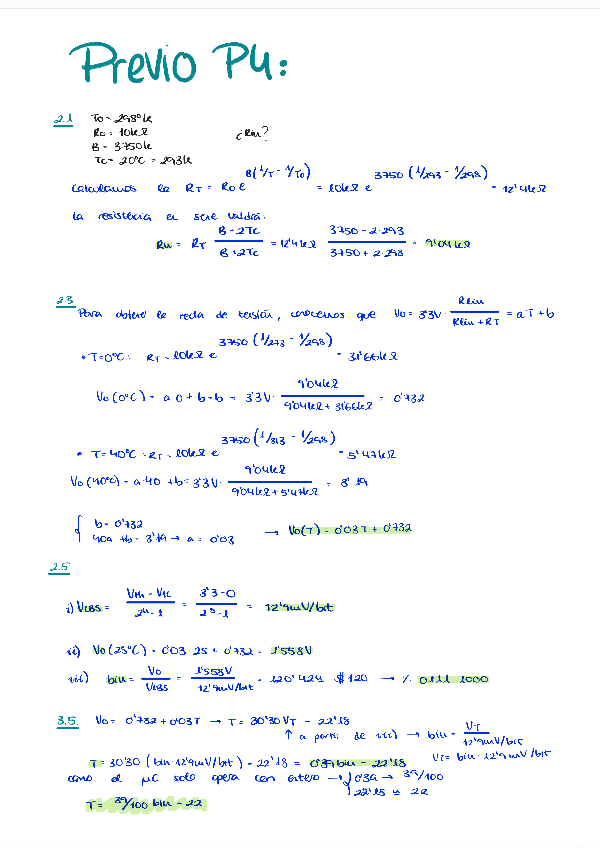 Previo P4:
2.1 To = 298°k
Ro = 10kΩ ¿Rlin?
B = 3750k
Tc = 20°C = 293k
Calculamos la RT = Ro e^B(1/T - 1/To) = 10kΩ e^3750 (1/293 - 1/298) = 12'4kΩ
la resistencia en serie valdrá:
Rlin = RT (B - 2Tc)/(B + 2Tc) = 12'4kΩ (3750 - 2·293)/(3750 + 2·298) = 9'04kΩ
2.3 Para obtener la recta de tensión, conocemos que Vo = 3'3V · Rlin/(Rlin + RT) = a·T + b
• T=0°C: RT = 10kΩ e^3750 (1/273 - 1/298) = 31'66kΩ
Vo (0°C) = a·0 + b = b = 3'3V · 9'04kΩ/(9'04kΩ + 31'66kΩ) = 0'732
• T=40°C = RT = 10kΩ e^3750 (1/313 - 1/298) = 5'47kΩ
Vo (40°C) = a·40 + b = 3'3V · 9'04kΩ/(9'04kΩ + 5'47kΩ) = 3'19
{ b = 0'732
40a + b = 3'19 → a = 0'03 → Vo(T) = 0'03T + 0'732
2.5
i) VLBS = (VIH - VIL)/(2^n - 1) = (3'3 - 0)/(2^8 - 1) = 12'9mV/bit
ii) Vo (25°C) = 0'03·25 + 0'732 = 1'558V
iii) bin = Vo/VLBS = 1'558V/12'9mV/bit = 120'424 $120 → % 0111 1000
3.5. Vo = 0'732 + 0'03T → T = 30'30 VT - 22'18
↑ a partir de iii) → bin = VT/12'9mV/bit
VT = bin · 12'9 mV/bit
T = 30'30 (bin·12'9mV/bit) - 22'18 = 0'39 bin - 22'18
como el μC solo opera con entero → { 0'39 → 39/100
22'18 ≈ 22
T = 39/100 bin - 22